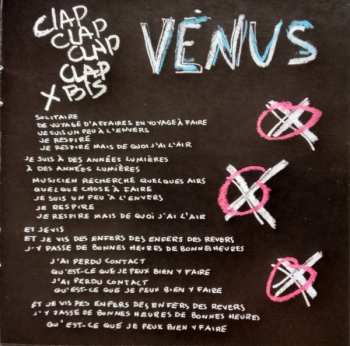 CLAP
CLAP
CLAP
CLAP
X BIS
VÉNUS
SOLITAIRE
DE VOYAGE D'AFFAIRES EN VOYAGE À FAIRE
JE SUIS UN PEU À L'ENVERS
JE RESPIRE
JE RESPIRE MAIS DE QUOI J'AI L'AIR
JE SUIS À DES ANNÉES LUMIÈRES
À DES ANNÉES LUMIÈRES
MUSICIEN RECHERCHE QUELQUES AIRS
QUELQUE CHOSE À FAIRE
JE SUIS UN PEU À L'ENVERS
JE RESPIRE
JE RESPIRE MAIS DE QUOI J'AI L'AIR
ET JE VIS
ET JE VIS DES ENFERS DES ENFERS DES REVERS
J'Y PASSE DE BONNES HEURES DE BONNES HEURES
J'AI PERDU CONTACT
QU'EST-CE QUE JE PEUX BIEN Y FAIRE
J'AI PERDU CONTACT
QU'EST-CE QUE JE PEUX BIEN Y FAIRE
ET JE VIS DES ENFERS DES ENFERS DES REVERS
J'Y PASSE DE BONNES HEURES DE BONNES HEURES
QU'EST-CE QUE JE PEUX BIEN Y FAIRE